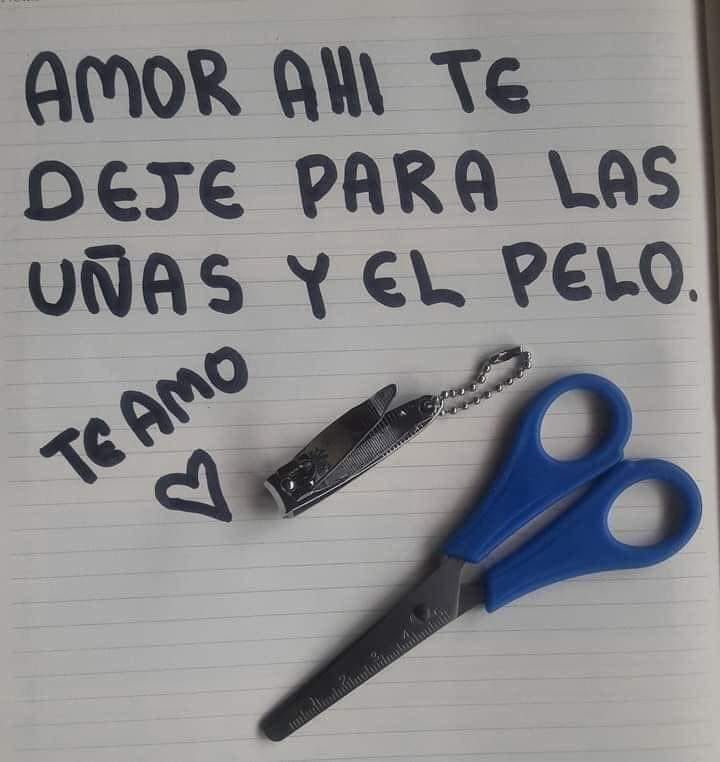 AMOR AHI TE
DEJE PARA LAS
UÑAS Y EL PELO.
TE AMO